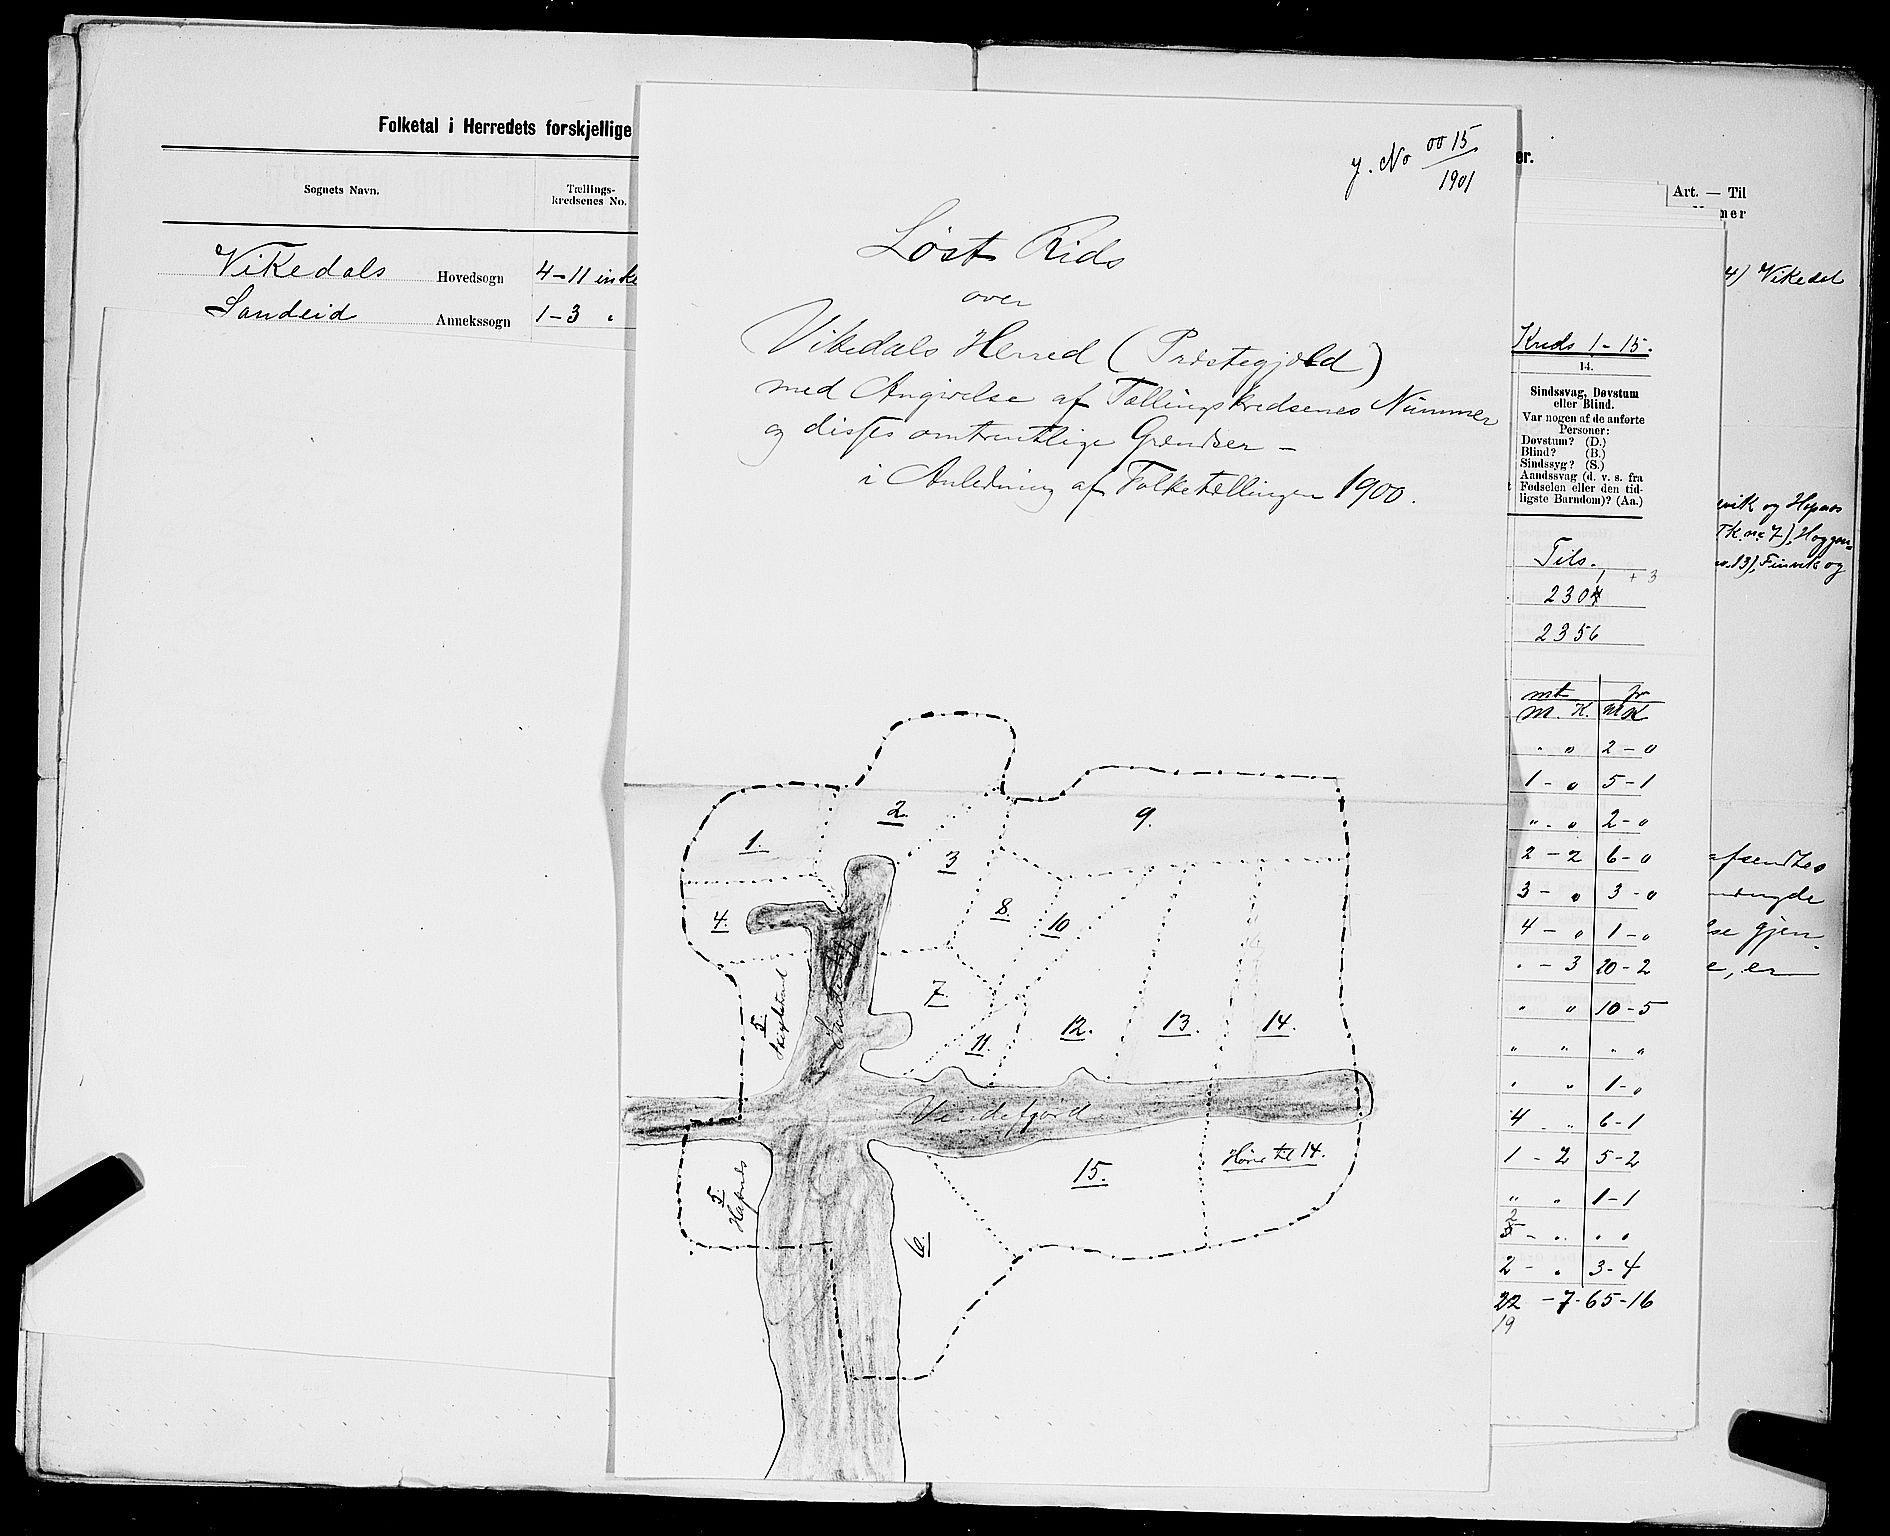 Folketal i Herredets forskjellige
Sognets Navn.
Tællings-
kredsenes No.
Vikedals Hovedsogn 4-11 inkl
Sandeid Annekssogn 1-3 "
J. No 0015
1901
Løst Rids
over
Vikedals Herred (Præstegjæld)
med Angivelse af Tællingskredsenes Nummer
og disses omtrentlige Grændser -
i Anledning af Folketællingen 1900.
1.
2.
3
9.
4.
8.
10
Sandeidfj
5
Skjølstand
7.
11.
12.
13.
14.
Vindefjord
5.
Hapnes
15.
Hører til 14.
6.
er.
Art. — Til
ner
4) Vikedal
Kreds 1-15.
14.
Sindssvag, Døvstum
eller Blind.
Var nogen af de anførte
Personer:
Døvstum? (D.)
Blind? (B.)
Sindssyg? (S.)
Aandssvag (d. v. s. fra
Fødselen eller den tid-
ligste Barndom)? (Aa.)
evik og Hapnes
(Tk. no 7), Hoggen=
no. 13), Finvik og
Tils.
+ 3
2304
2356
mt fr
M. K. M K
" " 2 - "
1 - " 5 - 1
" - " 2 - "
2 - 2 6 - "
3 - " 3 - "
4 - " 1 - "
" - 3 10 - 2
" " 10 - 5
" " " "
" " 1 - "
4 - " 6 - 1
1 - 2 5 - 2
" " 1 - 1
2
3 - " " "
2 - " 3 - 4
22 - 7 - 65 - 16
19
afsendtes
lse gjen-
e, er